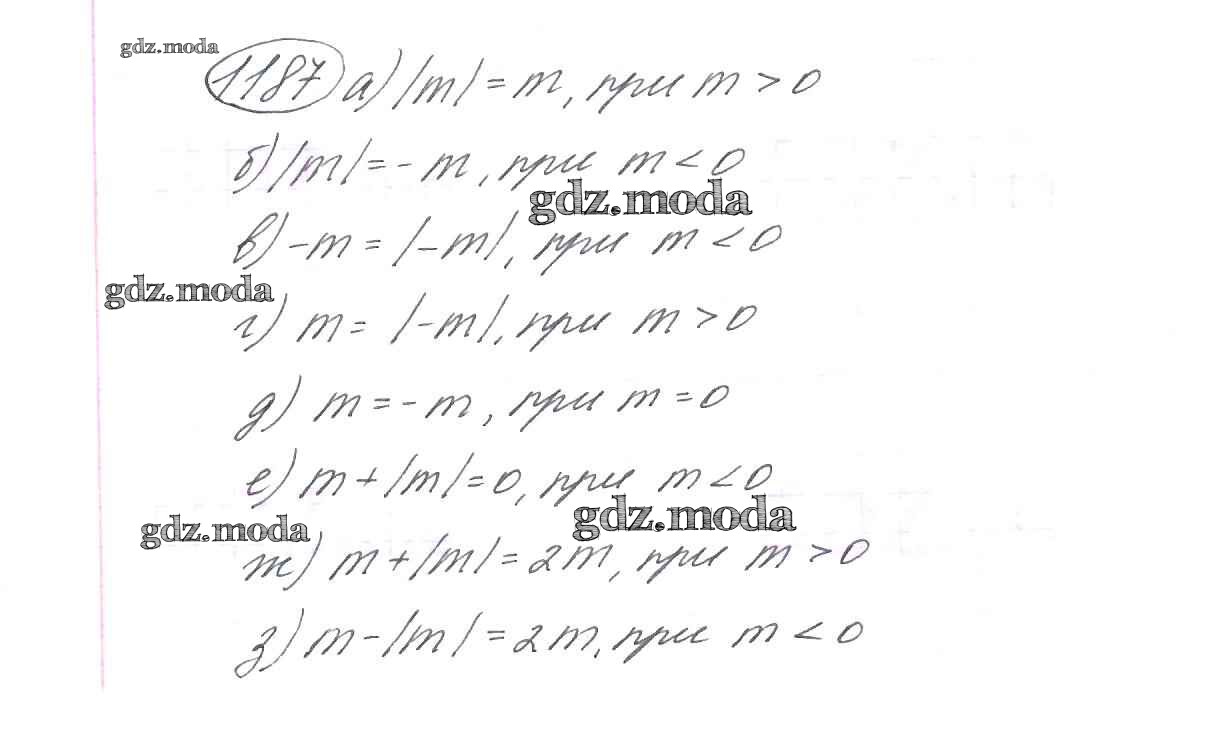 gdz.moda
1187 а) |m| = m, при m > 0
б) |m| = - m, при m < 0
gdz.moda
в) -m = |-m|, при m < 0
gdz.moda
г) m = |-m|, при m > 0
д) m = - m, при m = 0
е) m + |m| = 0, при m < 0
gdz.moda
gdz.moda
ж) m + |m| = 2m, при m > 0
з) m - |m| = 2m, при m < 0